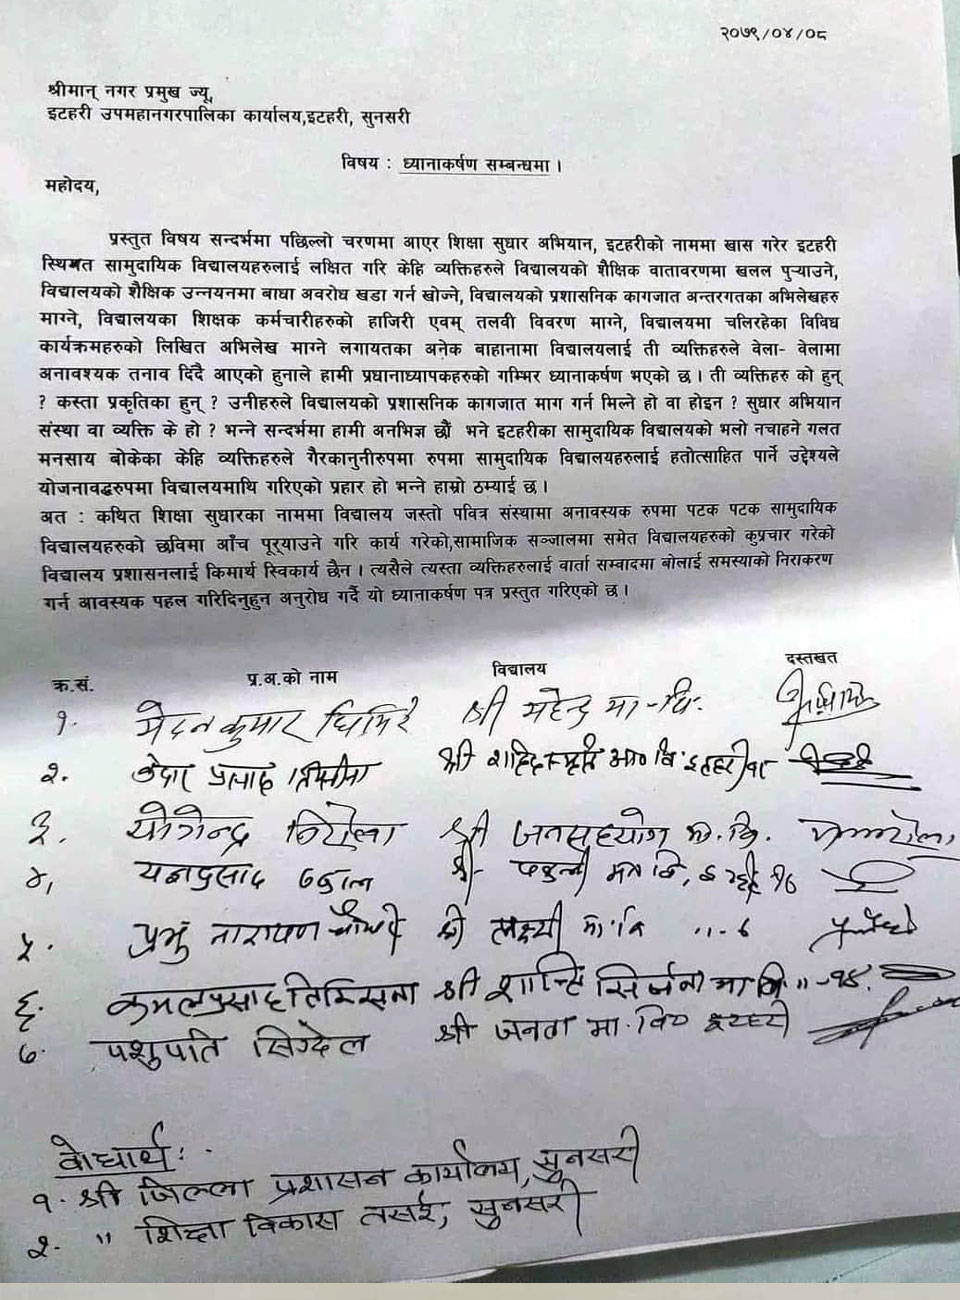 २०७९/०४/०८
श्रीमान् नगर प्रमुख ज्यू,
इटहरी उपमहानगरपालिका कार्यालय,इटहरी, सुनसरी
विषय : ध्यानाकर्षण सम्बन्धमा ।
महोदय,
प्रस्तुत विषय सन्दर्भमा पछिल्लो चरणमा आएर शिक्षा सुधार अभियान, इटहरीको नाममा खास गरेर इटहरी
स्थित सामुदायिक विद्यालयहरुलाई लक्षित गरि केहि व्यक्तिहरुले विद्यालयको शैक्षिक वातावरणमा खलल पुऱ्याउने,
विद्यालयको शैक्षिक उन्नयनमा बाधा अवरोध खडा गर्न खोज्ने, विद्यालयको प्रशासनिक कागजात अन्तरगतका अभिलेखहरु
माग्ने, विद्यालयका शिक्षक कर्मचारीहरुको हाजिरी एवम् तलवी विवरण माग्ने, विद्यालयमा चलिरहेका विविध
कार्यक्रमहरुको लिखित अभिलेख माग्ने लगायतका अनेक बाहानामा विद्यालयलाई ती व्यक्तिहरुले वेला- वेलामा
अनावश्यक तनाव दिंदै आएको हुनाले हामी प्रधानाध्यापकहरुको गम्भिर ध्यानाकर्षण भएको छ । ती व्यक्तिहरु को हुन्
? कस्ता प्रकृतिका हुन् ? उनीहरुले विद्यालयको प्रशासनिक कागजात माग गर्न मिल्ने हो वा होइन ? सुधार अभियान
संस्था वा व्यक्ति के हो ? भन्ने सन्दर्भमा हामी अनभिज्ञ छौं भने इटहरीका सामुदायिक विद्यालयको भलो नचाहने गलत
मनसाय बोकेका केहि व्यक्तिहरुले गैरकानुनीरुपमा रुपमा सामुदायिक विद्यालयहरुलाई हतोत्साहित पार्ने उद्देश्यले
योजनावद्धरुपमा विद्यालयमाथि गरिएको प्रहार हो भन्ने हाम्रो ठम्याई छ ।
अत : कथित शिक्षा सुधारका नाममा विद्यालय जस्तो पवित्र संस्थामा अनावस्यक रुपमा पटक पटक सामुदायिक
विद्यालयहरुको छविमा आँच पूर्‍याउने गरि कार्य गरेको,सामाजिक सञ्जालमा समेत विद्यालयहरुको कुप्रचार गरेको
विद्यालय प्रशासनलाई किमार्थ स्विकार्य छैन । त्यसैले त्यस्ता व्यक्तिहरुलाई वार्ता सम्वादमा बोलाई समस्याको निराकरण
गर्न आवस्यक पहल गरिदिनुहुन अनुरोध गर्दै यो ध्यानाकर्षण पत्र प्रस्तुत गरिएको छ ।
क्र.सं. प्र.अ.को नाम विद्यालय दस्तखत
१. मेदनकुमार घिमिरे श्री महेन्द्र मा.वि.
२. प्रसाद श्री इटहरी
३. योगेन्द्र निरौला श्री जनसहयोग मा.वि.
४. यज्ञप्रसाद श्री
५. प्रभु नारायण चौधरी श्री लक्ष्मी मा.वि ,,-६
६. कमलप्रसाद तिम्सिना श्री शान्ति सिर्जना मा वि ,,-१४.
७. पशुपति सिग्देल श्री जनता मा. वि० इटहरी
बोधार्थ :
१. श्री जिल्ला प्रशासन कार्यालय, सुनसरी
२. ,, शिक्षा विकास सुनसरी